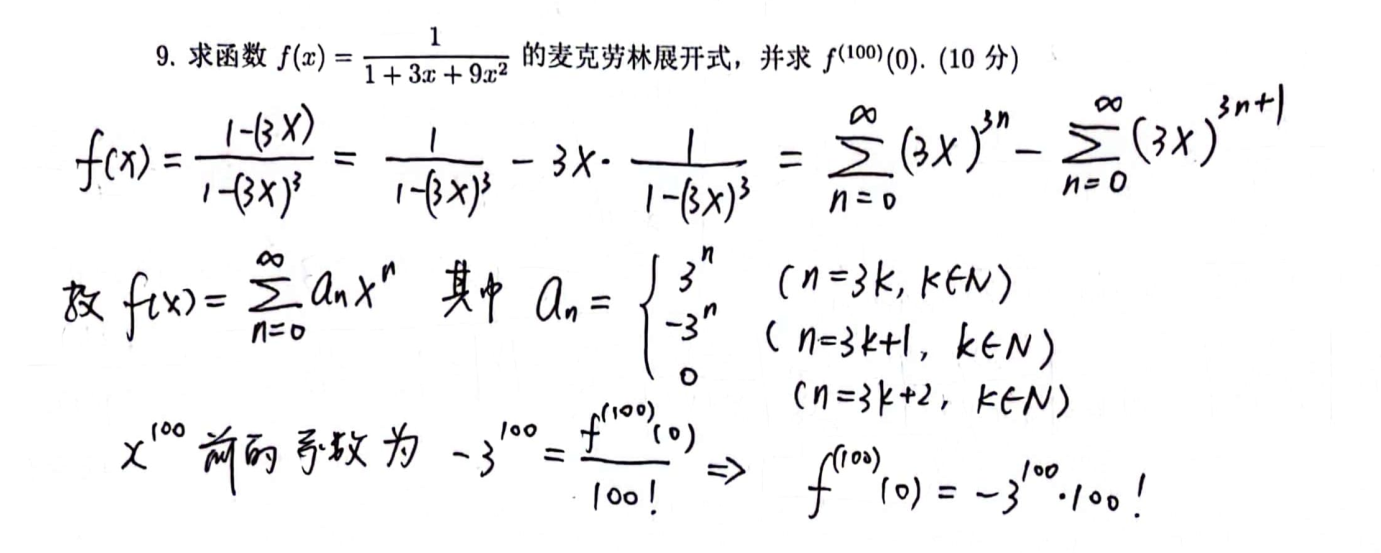 9. 求函数 f(x) = \frac{1}{1+3x+9x^2} 的麦克劳林展开式，并求 f^{(100)}(0). (10 分)
f(x) = \frac{1-(3x)}{1-(3x)^3} = \frac{1}{1-(3x)^3} - 3x \cdot \frac{1}{1-(3x)^3} = \sum_{n=0}^{\infty} (3x)^{3n} - \sum_{n=0}^{\infty} (3x)^{3n+1}
故 f(x) = \sum_{n=0}^{\infty} a_n x^n 其中 a_n = \begin{cases} 3^n & (n=3k, k \in N) \\ -3^n & (n=3k+1, k \in N) \\ 0 & (n=3k+2, k \in N) \end{cases}
x^{100} 前的系数为 -3^{100} = \frac{f^{(100)}(0)}{100!} \Rightarrow f^{(100)}(0) = -3^{100} \cdot 100!